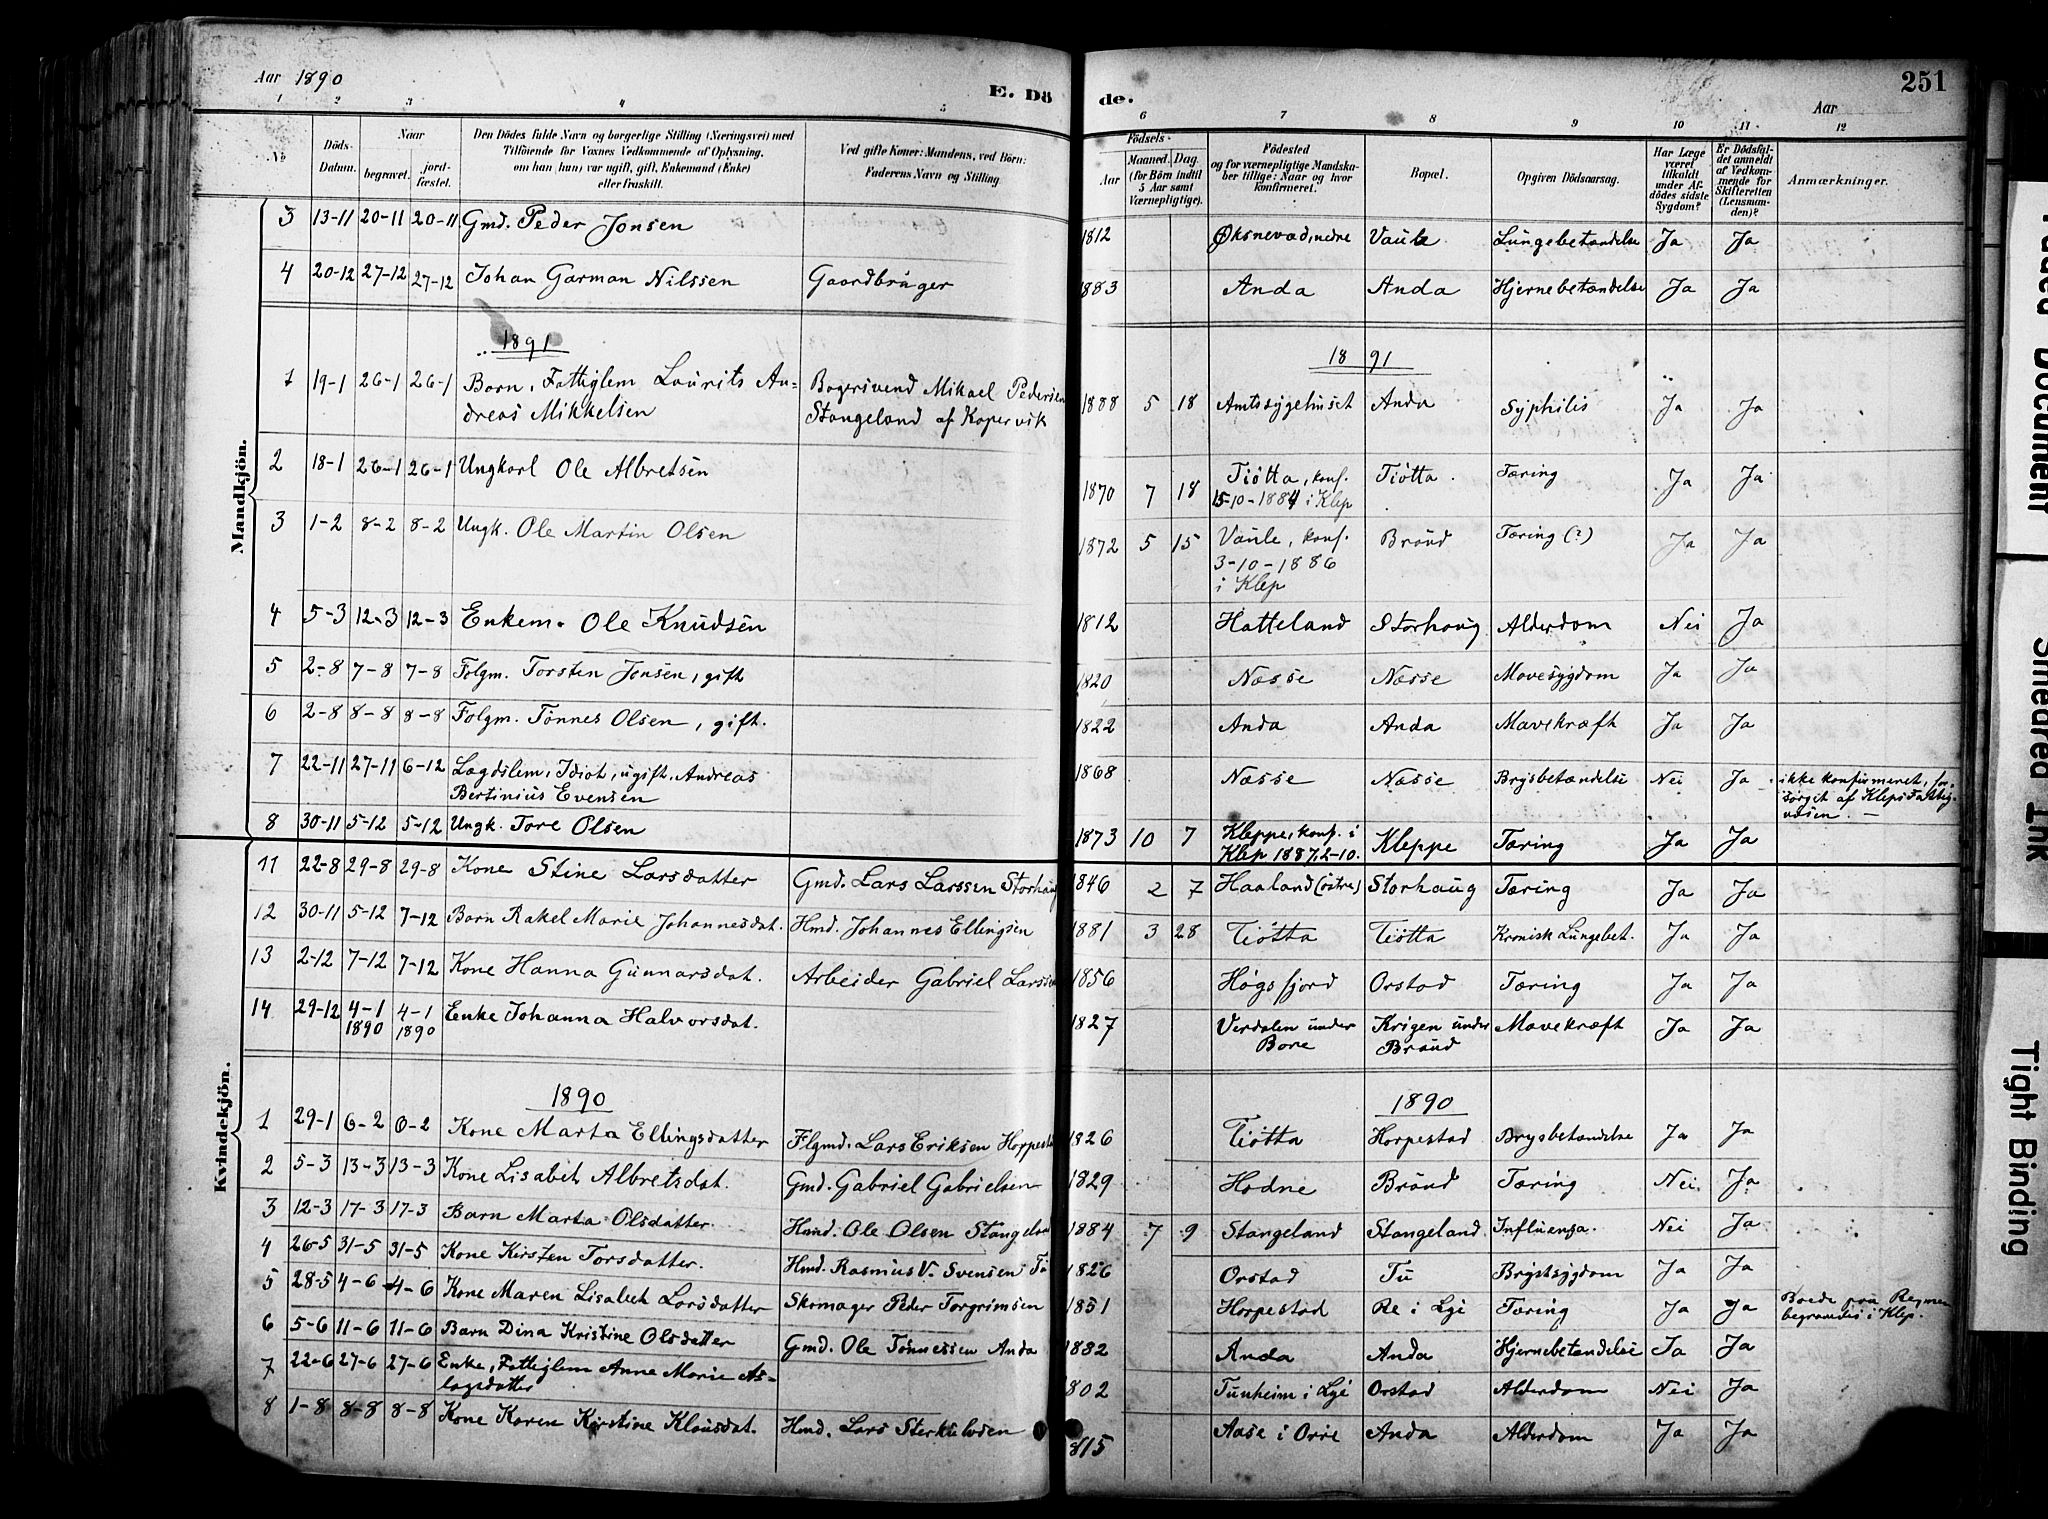 Aar 1890
E. Dö de.
251
Aar
1 2 3 4 5 6 7 8 9 10 11 12
No
Döds-Datum.
Naar
begravet. jordfæstet.
Den Dödes fulde Navn og borgerlige Stilling (Næringsvei) med
Tilföiende for Voxnes Vedkommende af Oplysning,
om han (hun) var ugift, gift, Enkemand (Enke)
eller fraskilt.
Ved gifte Koner: Mandens, ved Börn:
Faderens Navn og Stilling.
Födsels-
Aar Maaned. Dag.
(for Börn indtil
5 Aar samt
Værnepligtige).
Födested
og for værnepligtige Mandskaber tillige: Naar og hvor
konfirmeret.
Bopæl.
Opgiven Dödsaarsag.
Har Læge
været
tilkaldt
under Afdödes sidste
Sygdom?
Er Dödsfaldet anmeldt
af Vedkommende for
Skifteretten
(Lensmanden)?
Anmærkninger.
Mandkjön.
3 13-11 20-11 20-11 Gmd. Peder Jonsen 1812 Øksnevad, nedre Vaule Lungebetændelse Ja Ja
4 20-12 27-12 27-12 Johan Garman Nilssen Gaardbruger 1883 Anda Anda Hjernebetændelse Ja Ja
1891 1891
1 19-1 26-1 26-1 Barn, Fattiglem Laurits An- Bagersvend Mikael Pedersen
dreas Mikkelsen Stangeland af Kopervik 1888 5 18 Amtssygehuset Anda Syphilis Ja Ja
2 18-1 26-1 26-1 Ungkarl Ole Albretsen 1870 7 18 Tiötta, konf. Tiötta. Tæring Ja Ja
15-10-1884 i Klep
3 1-2 8-2 8-2 Ungk. Ole Martin Olsen 1872 5 15 Vaule, konf. Bröud Tæring (?) Ja Ja
3-10-1886
i Klep
4 5-3 12-3 12-3 Enkem. Ole Knudsen 1812 Hatteland Storhaug Alderdom Nei Ja
5 2-8 7-8 7-8 Folgm. Torsten Jonsen, gift 1820 Næsse Næsse Mavesygdom Ja Ja
6 2-8 8-8 8-8 Folgm. Tönnes Olsen, gift. 1822 Anda Anda Mavekræft Ja Ja
7 22-11 27-11 6-12 Lægdslem, Idiot, ugift, Andreas 1868 Næsse Næsse Brysbetændelse Nei Ja ikke konfirmeret, for
Bertinius Evensen sörget af Kleps Fattig-
væsen. —
8 30-11 5-12 5-12 Ungk. Tore Olsen 1873 10 7 Kleppe, konf. i Kleppe Tæring Ja Ja
Klep 1887, 2-10.
Kvindekjön.
11 22-8 29-8 29-8 Kone Stine Larsdatter Gmd. Lars Larssen Storhaug 1846 2 7 Haaland (östre) Storhaug Tæring Ja Ja
12 30-11 5-12 7-12 Barn Rakel Marie Johannesdat. Hmd. Johannes Ellingsen 1881 3 28 Tiötta Tiötta Kronisk Lungebet. Ja Ja
13 2-12 7-12 7-12 Kone Hanna Gunnarsdat. Arbeider Gabriel Larssen 1856 Høgsfjord Orstad Tæring Ja Ja
14 29-12 4-1 4-1 Enke Johanna Halvorsdat. 1827 Verdalen under Krigen under Mavekræft Ja Ja
1890 1890 Bore Bröud
1890 1890
1 29-1 6-2 6-2 Kone Marta Ellingsdatter Flgmd. Lars Eriksen Horpestad 1826 Tiötta Horpestad Brysbetændelse Ja Ja
2 5-3 13-3 13-3 Kone Lisabet Albretsdat. Gmd. Gabriel Gabrielsen 1829 Hodne Bröud Tæring Nei Ja
3 12-3 17-3 17-3 Barn Marta Olsdatter. Hmd. Ole Olsen Stangeland 1884 7 9 Stangeland Stangeland Influensa. Nei Ja
4 26-5 31-5 31-5 Kone Kirsten Torsdatter. Hmd. Rasmus V. Svensen, Tu 1826 Orstad Tu Brystsygdom Ja Ja
5 28-5 4-6 4-6 Kone Maren Lisabet Larsdatter Skomager Peder Torgrimsen 1851 Horpestad Re i Lye Tæring Ja Ja Boede paa
begravedes i Klep.
6 5-6 11-6 11-6 Barn Dina Kristine Olsdatter Gmd. Ole Tönnessen Anda 1882 Anda Anda Hjernebetændelse Ja Ja
7 22-6 27-6 27-6 Enke, Fattiglem Anne Marie As- 1802 Tunheim i Lye Orstad Alderdom Nei Ja
lagsdatter
8 1-8 8-8 8-8 Kone Karen Kirstine Klausdat. Hmd. Lars 1815 Aase i Orre Anda Alderdom Ja Ja
Faded Document
Smeared Ink
Tight Binding